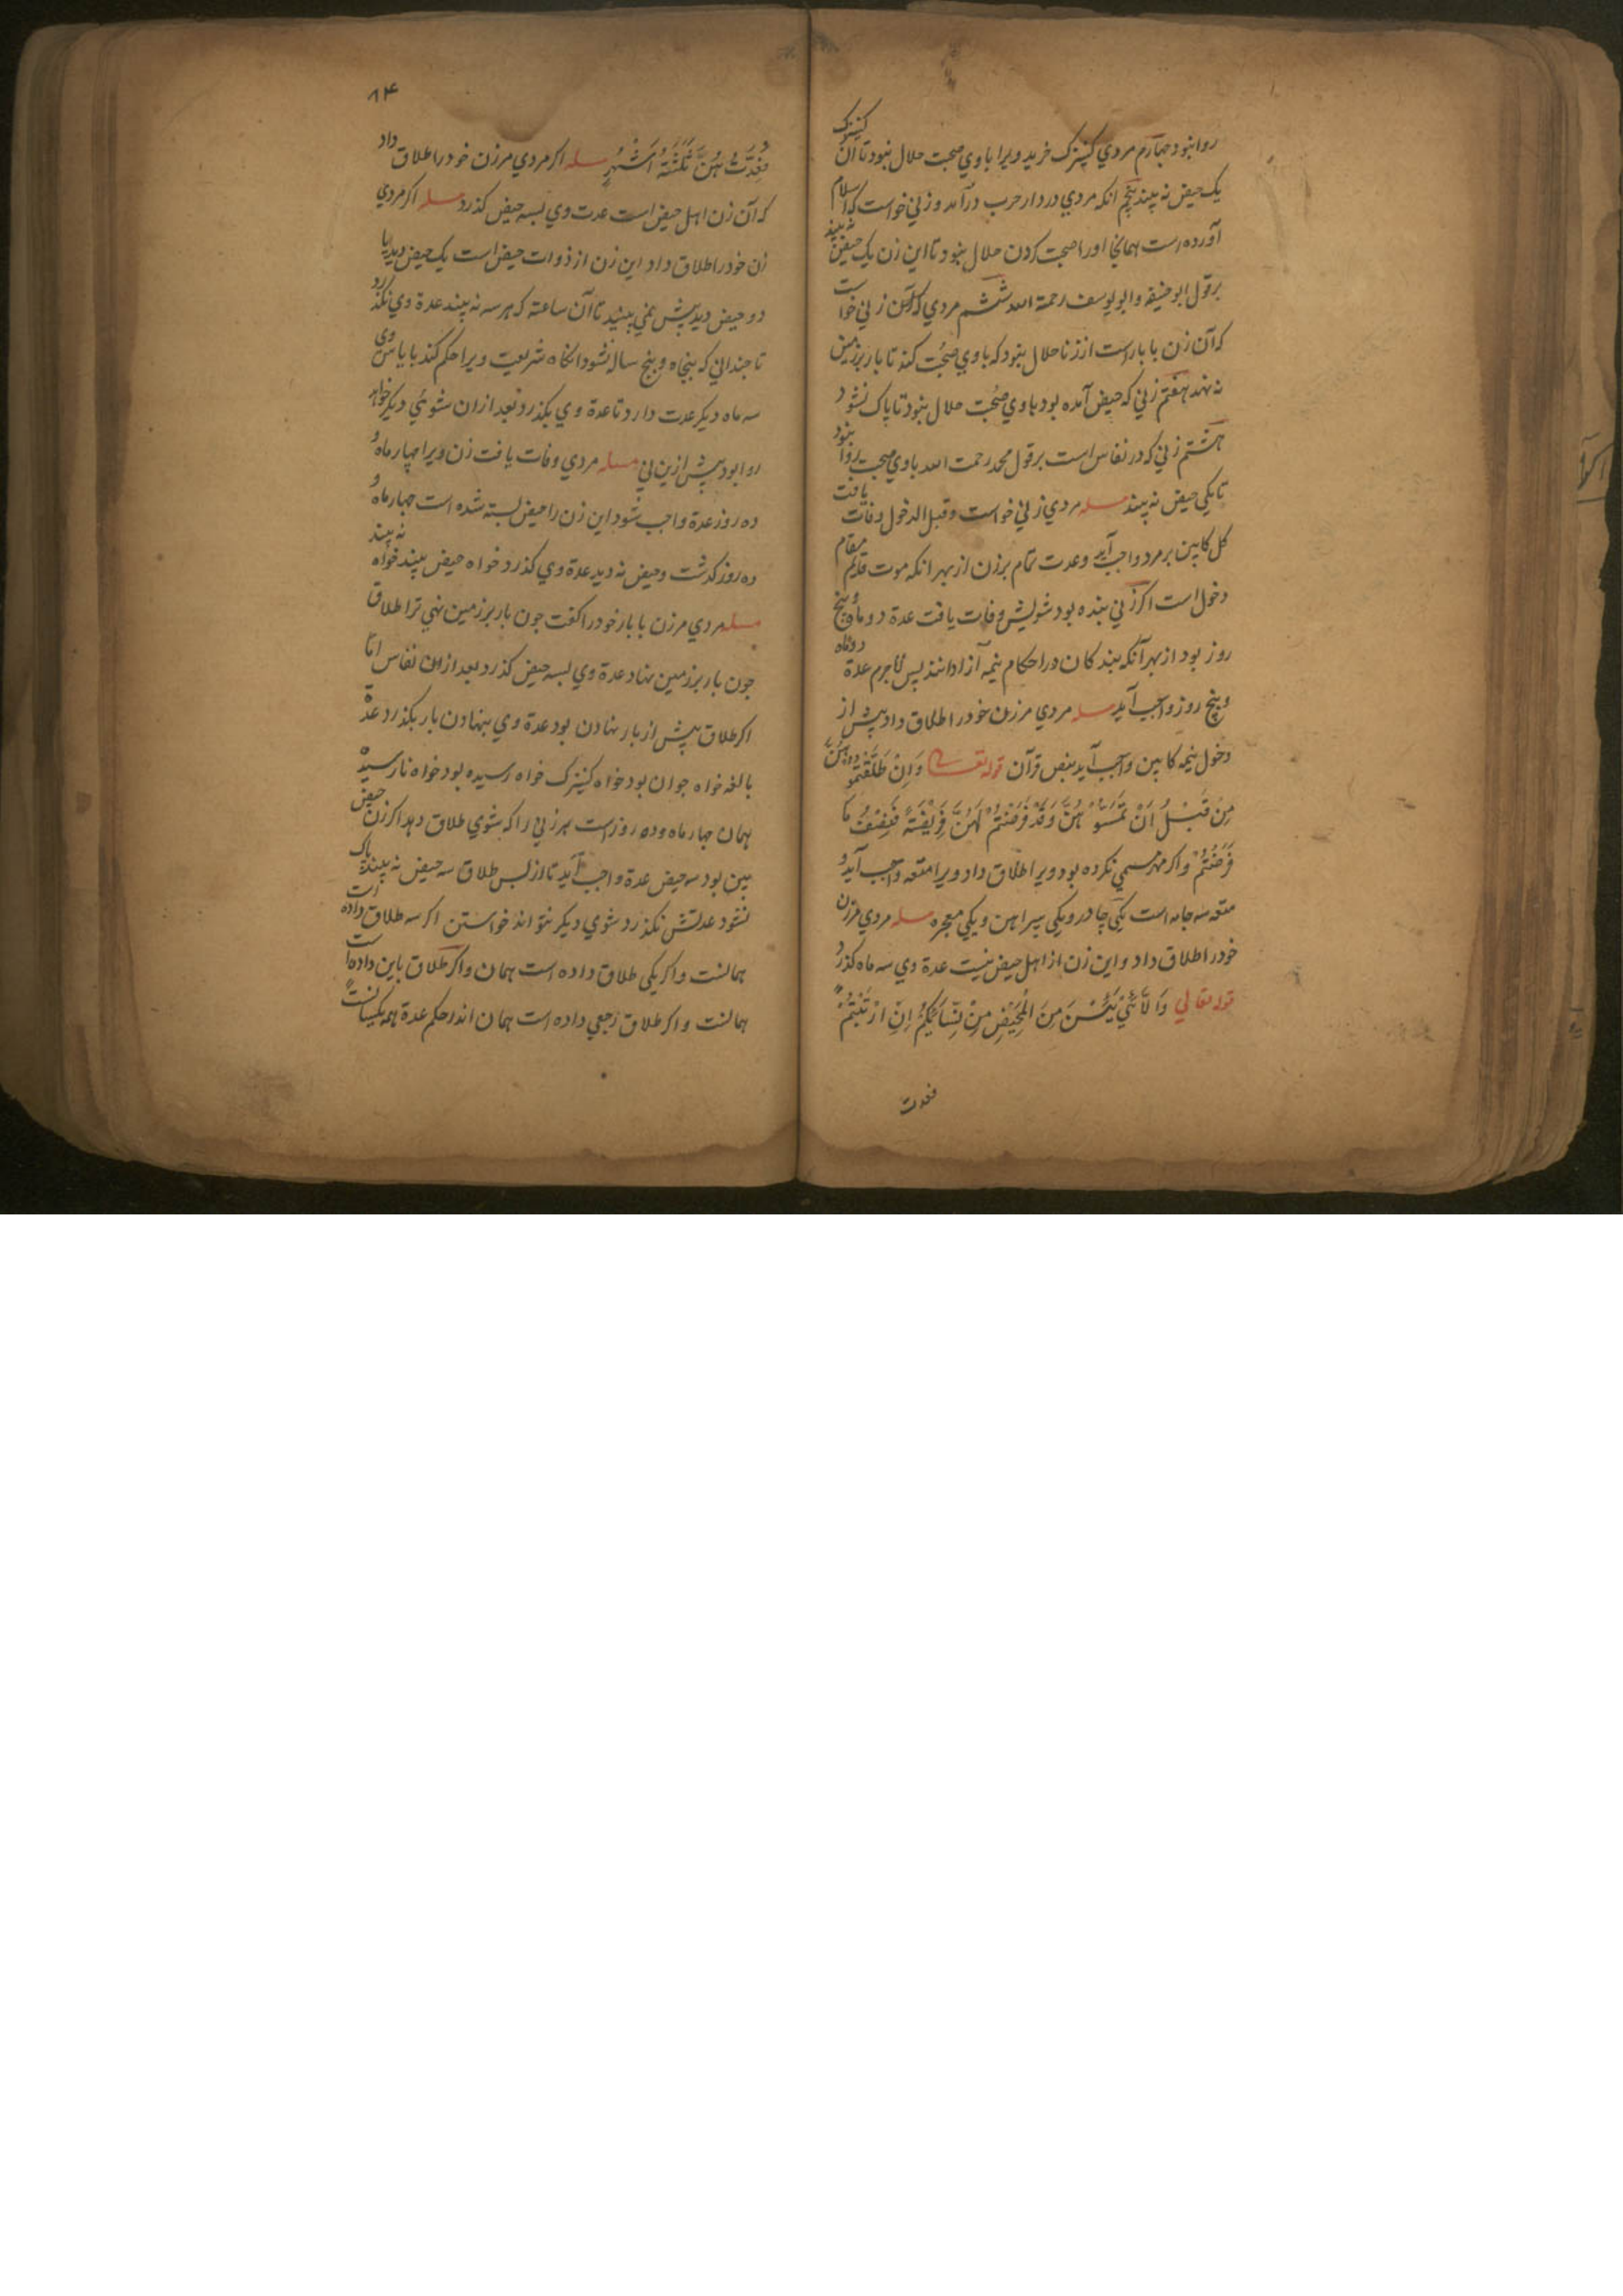 روا نبود چهارم مردي كنيزك خريد ويرا با وي صحبت حلال نبود تا آن كنيزك
يك حيض نه بيند پنجم انكه مردي در دار حرب درآمد و زني خواست كه اسلام
آورده است همانجا اورا صحبت كردن حلال نبود تا اين زن يك حيض نه بيند
برقول ابو حنيفه و ابو يوسف رحمة الله ششم مردي كه آن زني خواست
كه آن زن با بار است از زنا حلال نبود كه با وي صحبت كند تا بار بر زمين
نه نهد هفتم زني كه حيض آمده بود با وي صحبت حلال نبود تا پاك نشود
هشتم زني كه در نفاس است برقول محمد رحمت الله با وي صحبت روا نبود
تا يكي حيض نه بيند مسله مردي زني خواست و قبل الدخول وفات يافت
كل كابين بر مرد واجب آيد وعدت تمام بر زن از بهر انكه موت قايم مقام
دخول است اكر زني بنده بود شويش وفات يافت عدة دو ماه و پنج
روز بود از بهر آنكه بندكان در احكام نيمه آزادانند پس لاجرم عدة دو ماه
و پنج روز واجب آيد مسله مردي مر زن خود را طلاق داد پيش از
دخول نيمه كابين واجب آيد بنص قرآن قوله تعالى وَاِنْ طَلَّقْتُمُوهُنَّ
مِنْ قَبْلِ اَنْ تَمَسُّوهُنَّ وَقَدْ فَرَضْتُمْ لَهُنَّ فَرِيْضَةً فَنِصْفُ مَا
فَرَضْتُمْ واكر مهر مسمي نكرده بود ويرا طلاق داد ويرا متعه واجب آيد و
متعه سه جامه است يكي چادر و يكي پيراهن و يكي معجره مسله مردي مر زن
خود را طلاق داد و اين زن از اهل حيض نيست عدة وي سه ماه كذرد
قوله تعالي وَالْلاَّئِي يَئِسْنَ مِنَ الْمَحِيْضِ مِنْ نِسَائِكُمْ اِنِ ارْتَبْتُمْ
فعدت
۸۴
فَعِدَّتُهُنَّ ثَلٰثَةُ اَشْهُرٍ مسله اكر مردي مر زن خود را طلاق داد
كه آن زن اهل حيض است عدت وي بسه حيض كذرد مسله اكر مردي
زن خود را طلاق داد اين زن از ذوات حيض است يك حيض ديد يا
دو حيض ديد پيش نمي بيند تا آن ساعته كه هر سه نه بيند عدة وي نكذرد
تا چنداني كه پنجاه و پنج ساله نشود انكاه شريعت ويرا حكم كند باياس وي
سه ماه ديكر عدت دارد تا عدة وي بكذرد بعد ازان شوئي ديكر خواهد
روا بود پيش ازين ني مسله مردي وفات يافت زن ويرا چهار ماه و
ده روز عدة واجب شود اين زن را حيض بسته شده است چهار ماه و
ده روز كذشت و حيض نه ديد عدة وي كذرد خواه حيض بيند خواه نه بيند
مسله مردي مر زن با بار خود را كفت چون بار بر زمين نهي ترا طلاق
چون بار بر زمين نهاد عدة وي بسه حيض كذرد بعد ازان نفاس اما
اكر طلاق پيش از بار نهادن بود عدة وي بنهادن بار بكذرد عدة
بالغه خواه جوان بود خواه كنيزك خواه رسيده بود خواه نارسيده
همان چهار ماه و ده روز است هر زني را كه شوي طلاق دهد اكر زن حيض
بين بود سه حيض عدة واجب آيد تا از پس طلاق سه حيض نه بيند پاك
نشود عدتش نكذرد شوي ديكر نتواند خواستن اكر سه طلاق داده است
همانست و اكر يكي طلاق داده است همان و اكر طلاق باين داده است
همانست و اكر طلاق رجعي داده است همان اندر حكم عدة همه يكسانست